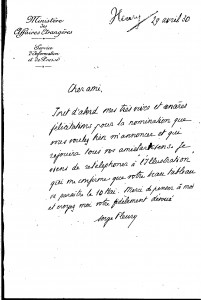 Ministère
des
Affaires Étrangères
Service
d'Information
et de Presse
29 avril 30
Cher ami,
Tout d'abord mes très vives et sincères
félicitations pour la nomination que
vous voulez bien m'annoncer et qui
réjouira tous vos amis. Je
viens de retéléphoner à l'Illustration
qui me confirme que votre beau tableau
va paraître le 10 Mai. Merci de penser à moi
et croyez moi votre fidèlement dévoué
Serge Fleury